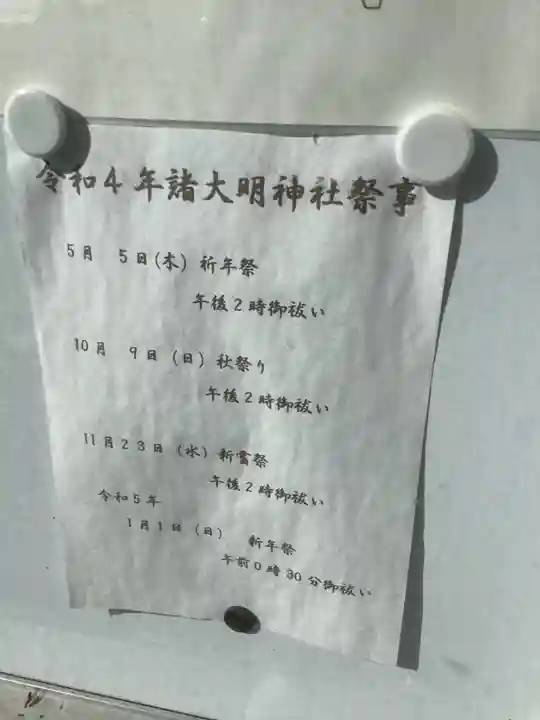 令和4年諸大明神社祭事
5月 5日(木) 祈年祭
午後2時御祓い
10月 9日(日)秋祭り
午後2時御祓い
11月23日(水)新嘗祭
午後2時御祓い
令和5年
1月1日(日) 新年祭
午前0時30分御祓い